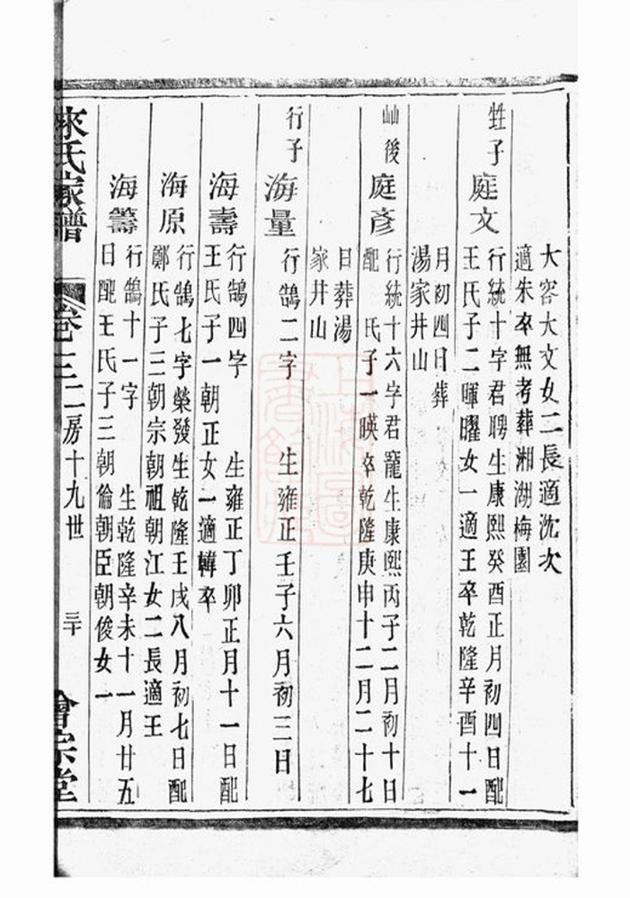 大容大文女二長適沈次
適朱卒無考葬湘湖梅園
甡子
庭文
行統十字君聘生康熙癸酉正月初四日配
王氏子二暉曜女一適王卒乾隆辛酉十一
月初四日葬
湯家井山
後
庭彥
行統十六字君寵生康熙丙子二月初十日
配 氏子一暎卒乾隆庚申十二月二十七
日葬湯
家井山
行子
海量
行鵠二字 生雍正壬子六月初三日
海壽
行鵠四字 生雍正丁卯正月十一日配
王氏子一朝正女一適韓卒
海原
行鵠七字榮發生乾隆壬戌八月初七日配
鄭氏子三朝宗朝祖朝江女二長適王
海籌
行鵠十一字 生乾隆辛未十一月廿五
日配王氏子三朝倫朝臣朝俊女一
來氏家譜
卷三
二房十九世
三十
會宗堂
上海圖書館藏